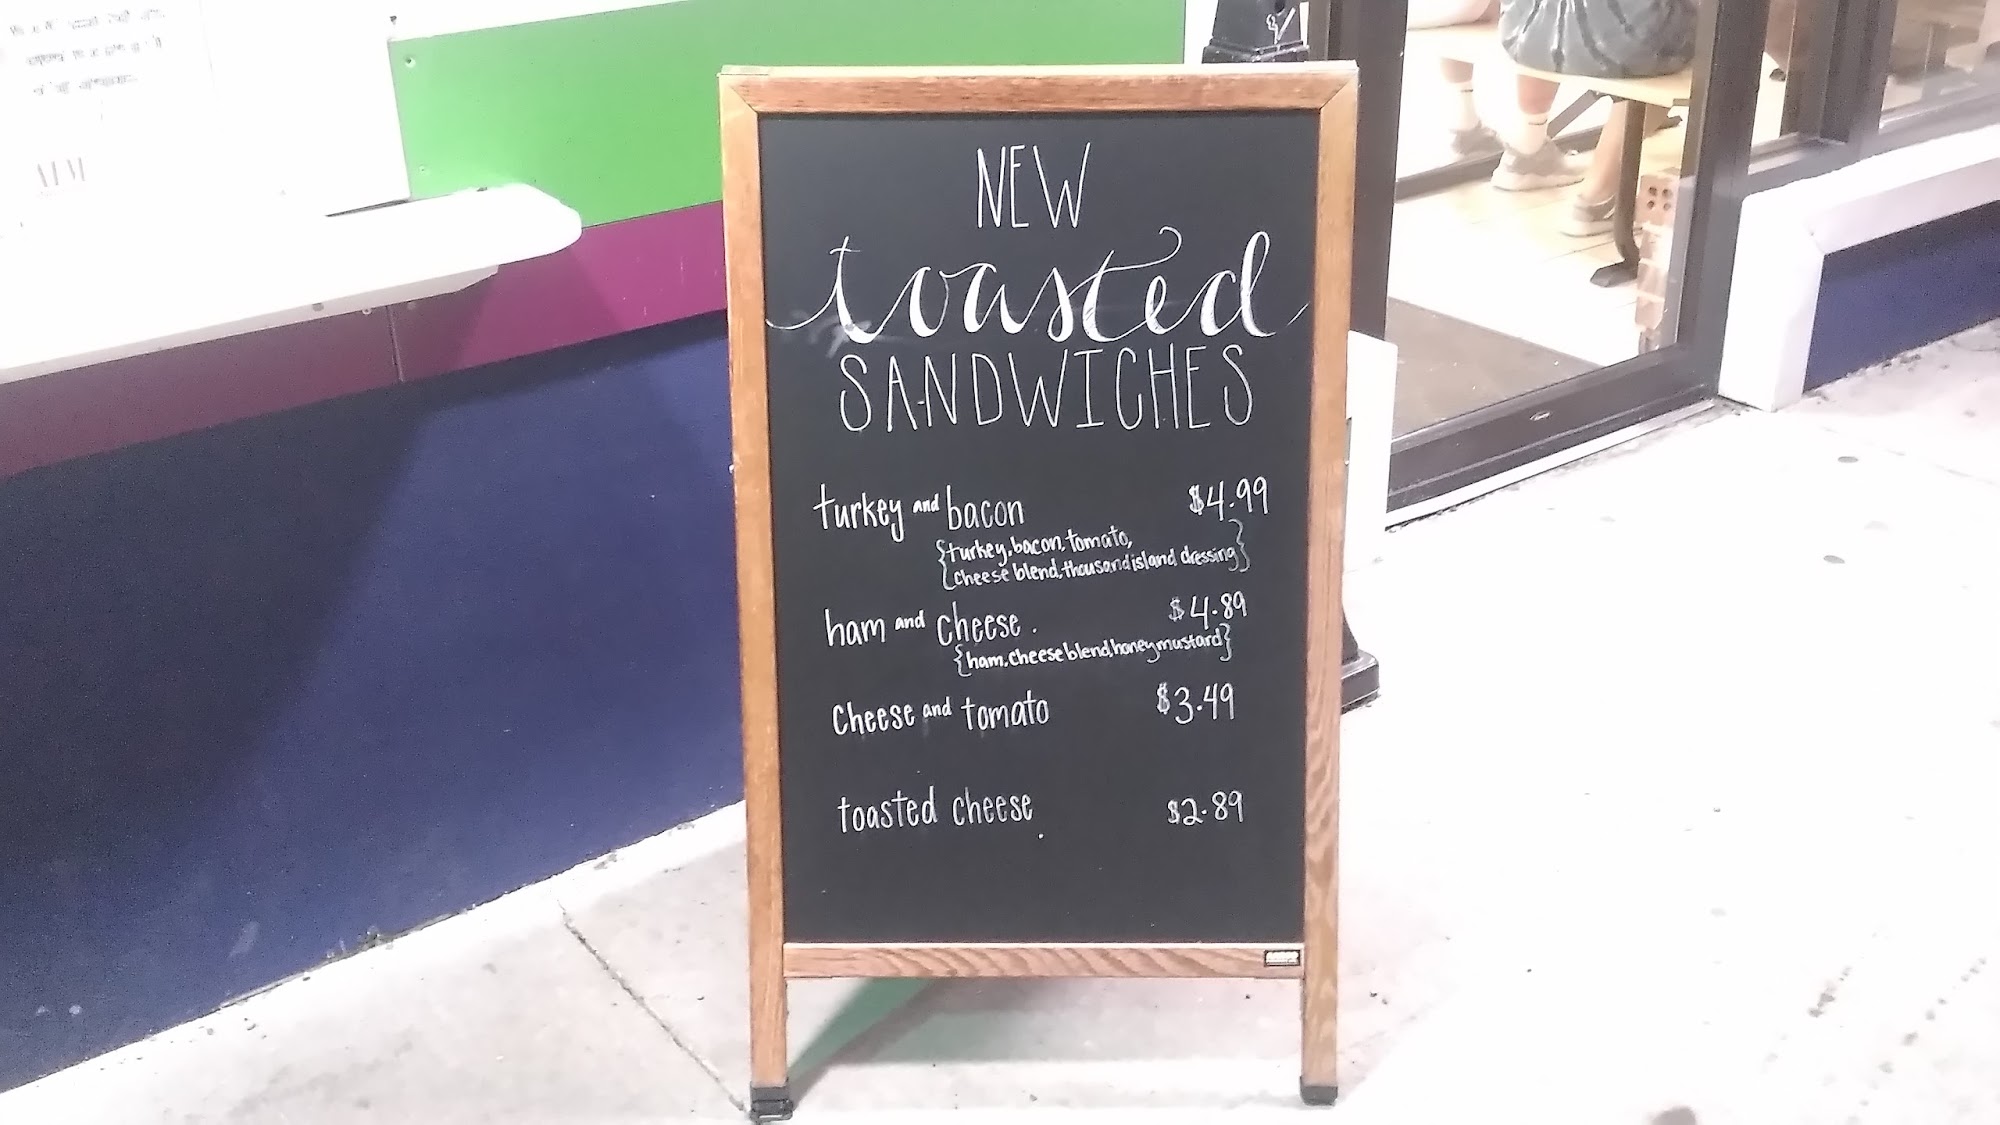 NEW
toasted
SANDWICHES
turkey and bacon $4.99
{turkey, bacon, tomato,
cheese blend, thousand island dressing}
ham and cheese. $4.89
{ham, cheese blend, honey mustard}
cheese and tomato $3.49
toasted cheese. $2.89